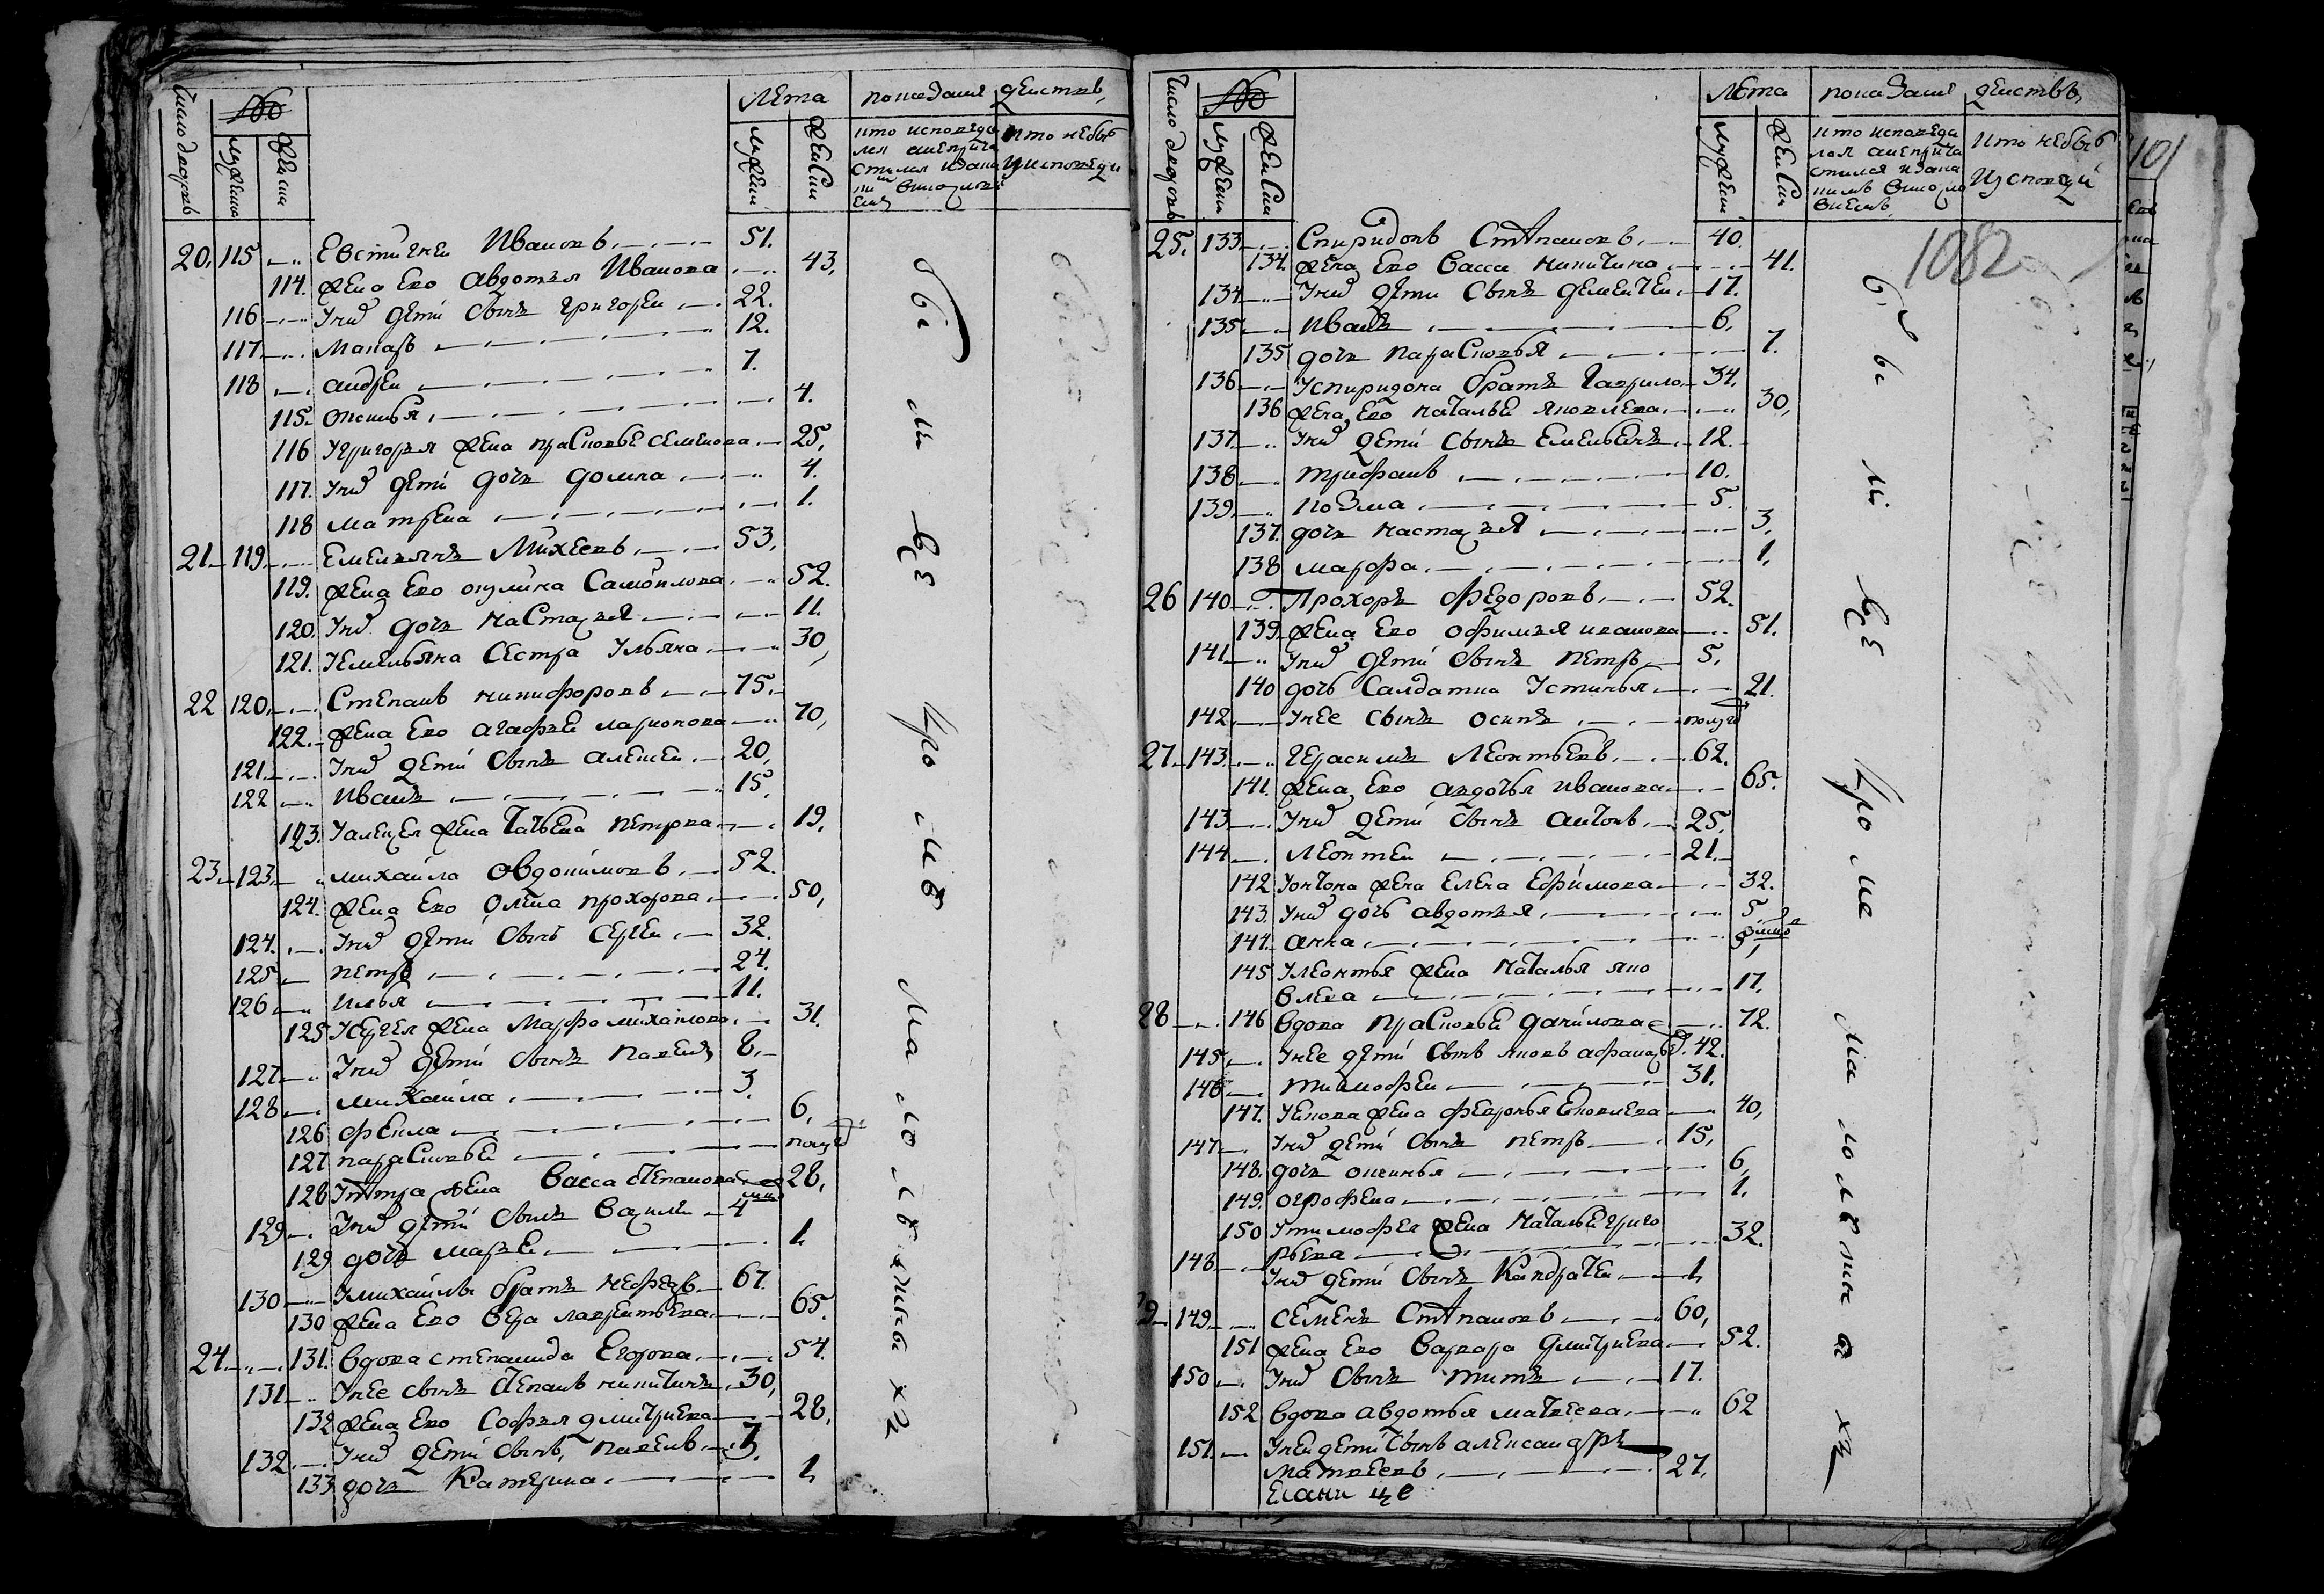 Число дворовъ
№
мужеска
женска
Лета
мужеска
женска
показания действъ,
кто исповеда
кто небы
у исповеди
20. 115 Евстигней Ивановъ 51.
114. жена Ево Авдотья Иванова 43.
116 У них дети сынъ григорей 22.
117 Макаръ 12.
118 андрей 7.
115. Оксинья 4.
116 У григорья жена прасковье семенова 25.
117. У них дети дочь домна 4.
118 матрена 1.
21. 119 Емельянъ Михеевъ 53.
119. жена Ево окулина Самойлова 52.
120. У них дочь настасья 11.
121. У емельяна сестра Ульяна 30.
22 120. Степанъ никифоровъ 75.
122. жена Ево агафье ларионова 70.
121. У них дети сынъ алексей 20.
122 Иванъ 15.
123. У алексея жена Татьена петрова 19.
23. 123. михаила Овдокимовъ 52.
124. жена Ево Олена прохорова 50.
124. У них дети сынъ сергей 32.
125 петръ 24.
126 илья 11.
125 У сергея жена Марфа михайлова 31.
127 У них дети сынъ павелъ 8.
128 михаила 3.
126 фекла 6.
127 парасковье
128 У петра жена Васса степанова 28.
129 У них дети сынъ Василей 4
129 дочь марье 1.
130 У михаилы братъ нефедъ 67.
130 жена Ево Вера лаврентьева 65.
24. 131. вдова степанида Егорова 54.
131 У нее сынъ степанъ никитинъ 30.
132 жена Ево Софья дмитриева 28.
132. У них дети сынъ, павелъ 3.
133 дочь Катерина 1.
бы ли все кро ме ма ло летны хъ
Число дворовъ
№
мужеска
женска
Лета
мужеска
женска
показания действъ,
кто исповеда
кто небыв
1082
25. 133 Спиридонъ Степановъ 40.
134. жена Ево Васса никитина 41.
134 У них дети сынъ дементей 17.
135 Иванъ 6.
135 дочь парасковья 7.
136 У спиридона братъ Гаврило 34.
136 жена Ево наталье яковлева 30.
137 У них дети сынъ Емельянъ 12.
138 трифанъ 10.
139 козма 5.
137. дочь настасья 3.
138 марфа 1.
26 140 Прохоръ федоровъ 52.
139. жена Ево офимья иванова 51.
141 У них дети сынъ петръ 5.
140 дочь салдатка Устинья 21.
142. У нее сынъ осипъ
27. 143. Герасимъ Леонтьевъ 62.
141. жена Ево авдотья иванова 65.
143 У них дети сынъ антонъ 25.
144 Леонтей 21.
142 У онтона жена Елена Ефимова 32.
143. У них дочь авдотья 5
144. анна
145 У леонтья жена Наталья яко
влева 17.
28 146 вдова прасковье данилова 72.
145 У нее дети сынъ яковъ 42.
146 тимофей 31.
147. У якова жена февронья яковлева 40.
147 У них дети сынъ петръ 15.
148. дочь оксинья 6.
149. огрофена 1.
150 У тимофея жена Наталье григо
рьева 32.
148 У них дети сынъ Кандратей 1.
149 семенъ Степановъ 60.
151 жена Ево варвара дмитриева 52.
150 У них сынъ титъ 17.
152 вдова авдотья матвеева 62
151. У неи дети сынъ александръ
матвеевъ 27.
бы ли все кро ме ма ло летны хъ
101